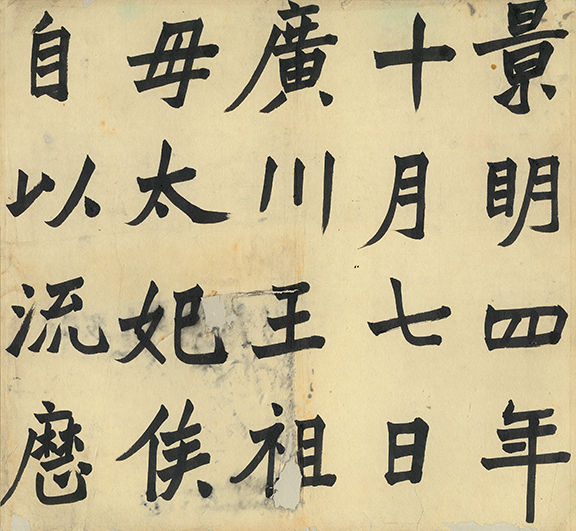 景明四年
十月七日
廣川王祖
毋太妃侯
自以流歷